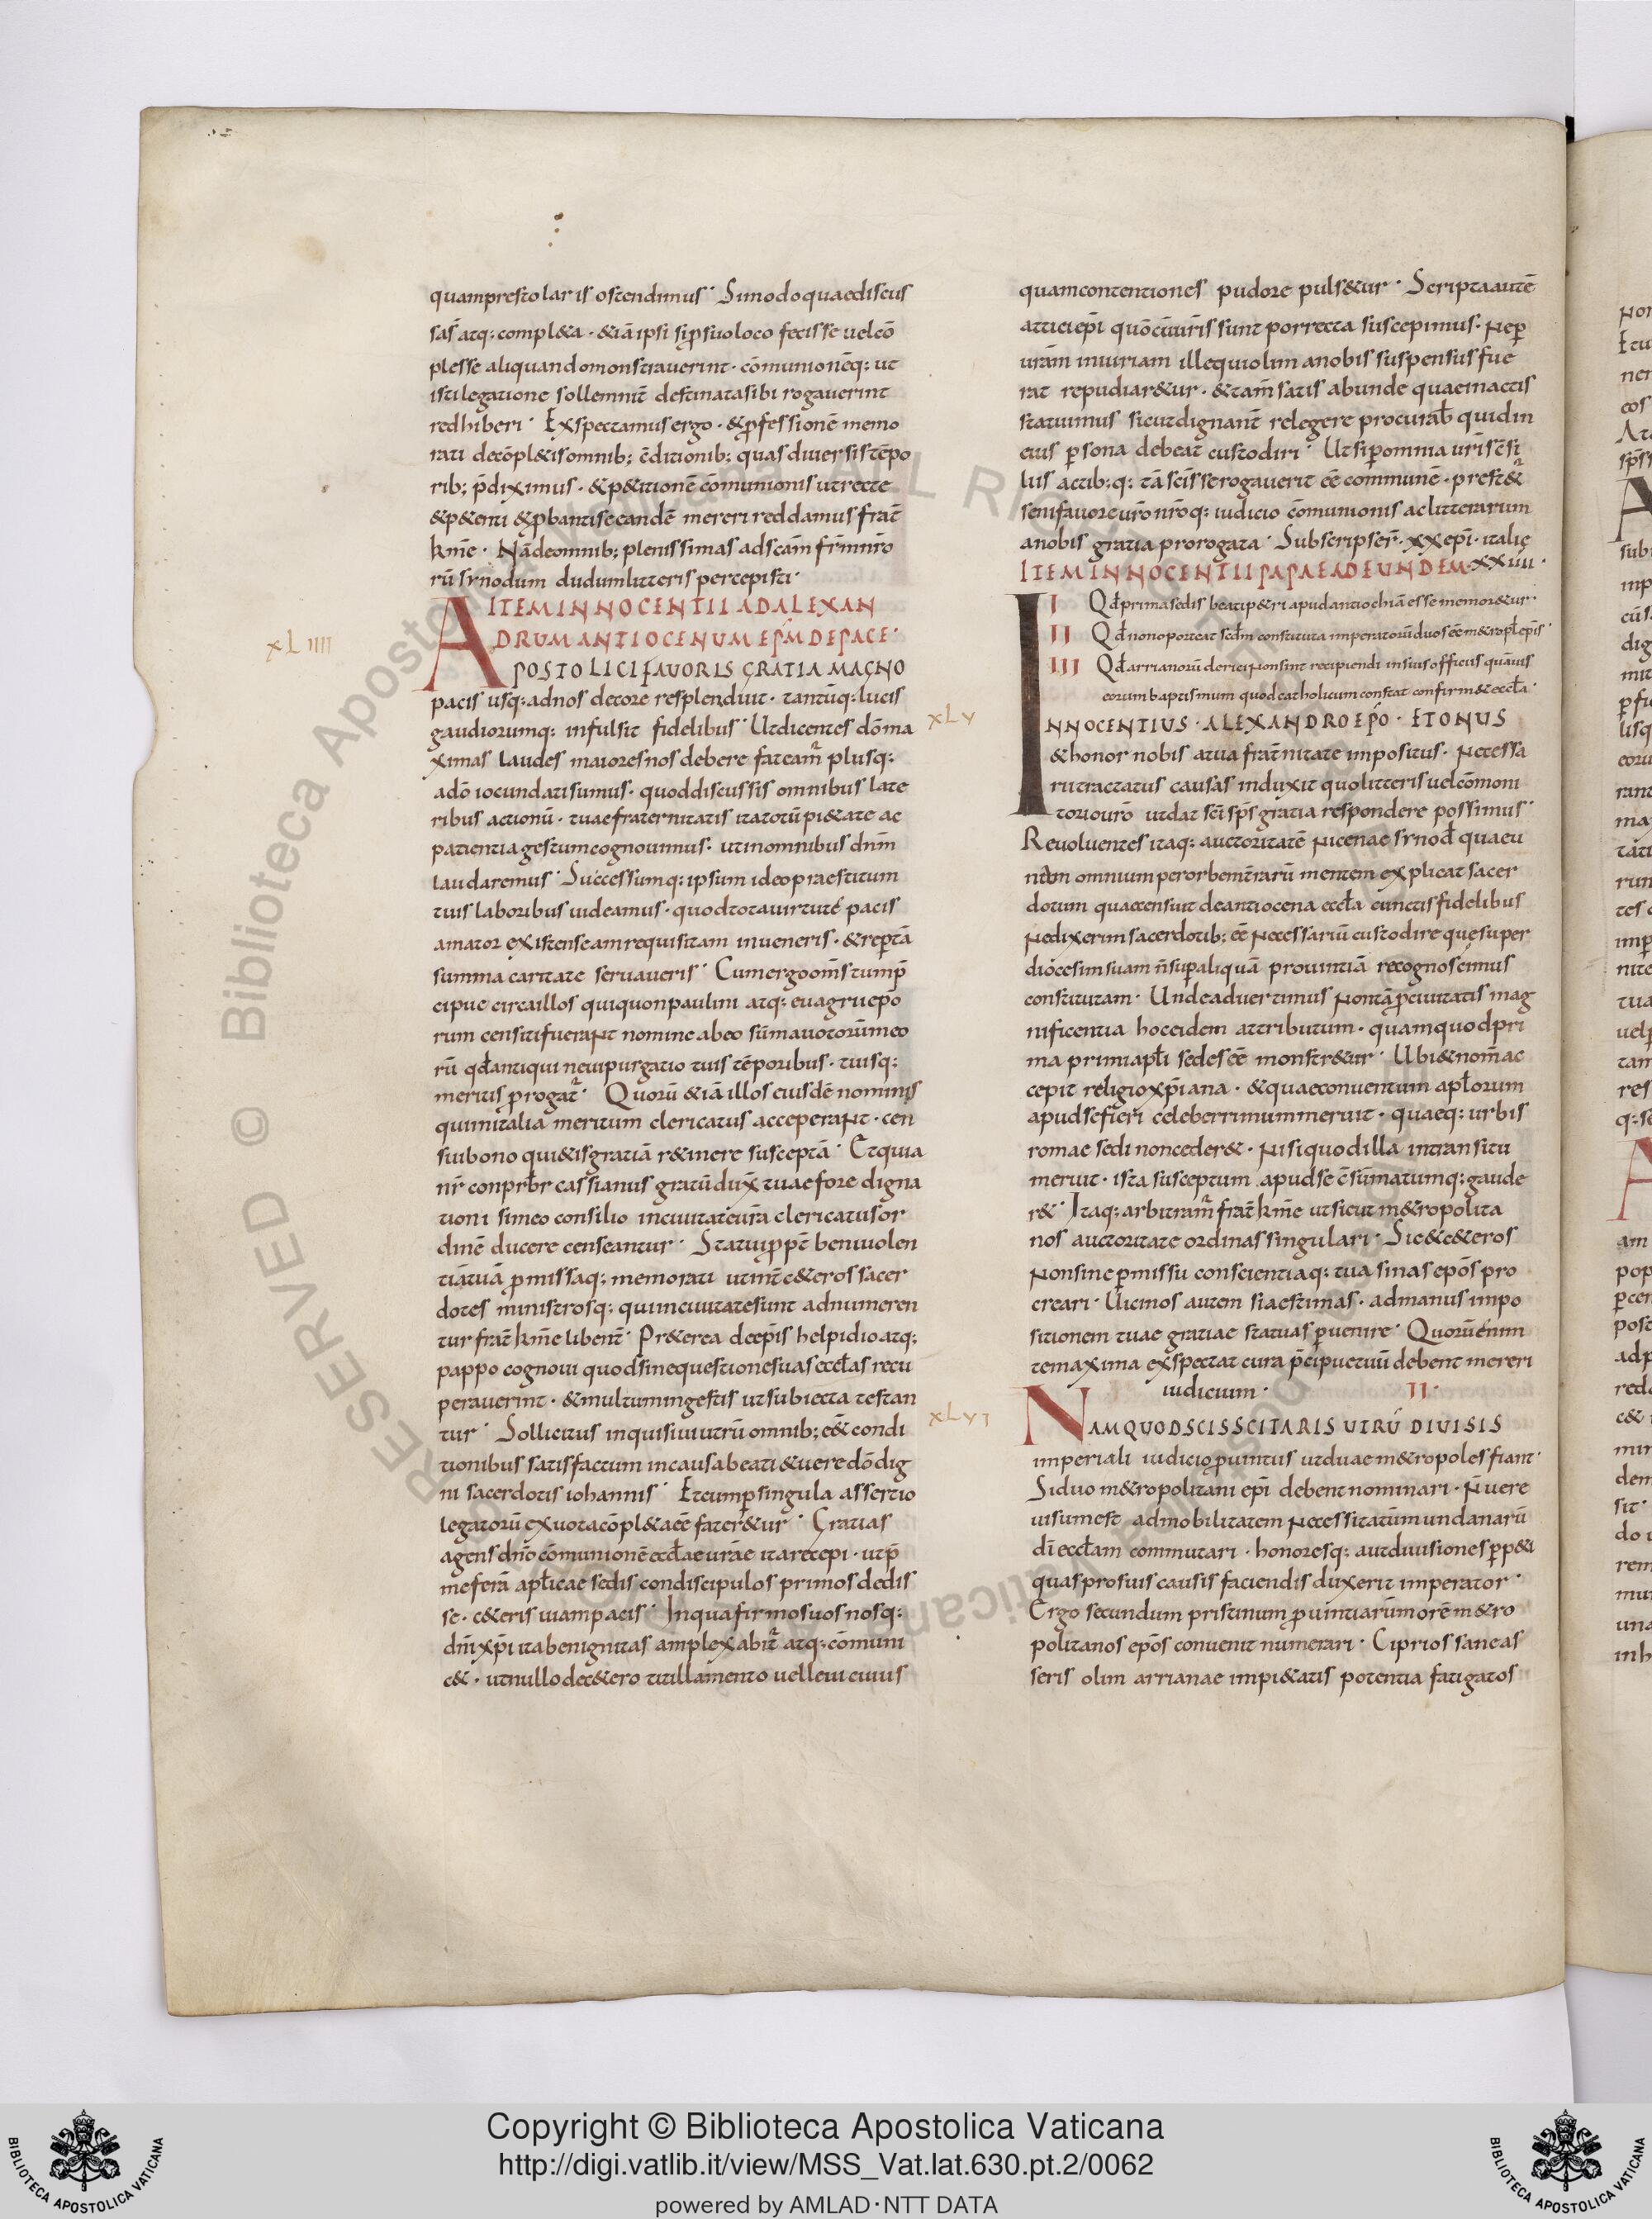 quamprestolaris ostendimus· Simodo quaediscus
sas atq; compl&a· &iā ipsi siꝑsuoloco fecisse uelcō
plesse aliquandomonstrauerint· cōmunionēq; ut
istilegatione sollemnit̄ destinatasibi rogauerint
redhiberi· Exspectamusergo· &ꝓfessionē memo
rati decōpl&isomnib; c̄ditionib; quasdiuersistēpo
rib; p̄diximus· &p&itionē cōmunionis utrecte
&p&enti &ꝓbantisecandē mereri reddamus frat̄
km̄e· Nādeomnib; plenissimas adscām frm̄nr̄o
rū synodum dudumlitteris percepisti·
ITEM INNOCENTII AD ALEXAN
DRUM ANTIOCENUM EPM̄ DE PACE·
XLIIII
APOSTOLICI FAVORIS GRATIA MAGNO
pacis usq; adnos decore resplenduit· tantūq; lucis
gaudiorumq; infulsit fidelibus· Utdicentes dōma
ximas laudes maioresnos debere fateam̄ plusq;
adō iocundatisumus· quoddiscussis omnibus late
ribus actionū· tuaefraternitatis itatotū pi&ate ac
patientia gestumcognouimus· utinomnibus dnm̄
laudaremus· Successumq; ipsum ideopraestitum
tuis laboribus uideamus· quodtotauirtuté pacis
amator existenseamrequisitam inueneris· &reptā
summa caritate seruaueris· Cumergoom̄stump̄
cipue circaillos quiquonpaulini atq; euagriiepō
rum censitifuerant nomine abeo sūmauotorūmeo
rū qd̄antiqui neuipurgatio tuis tēporibus· tuisq;
meritis ꝓrogat̄· Quorū &iā illos eiusdē nominis
quiinitalia meritum clericatus acceperant· cen
suibono qui&isgratiā r&inere susceptā· Etquia
nr̄ conprb̄r cassianus gratūdux̄ tuaefore digna
tioni simeo consilio inciuitateura clericatusor
dinē ducere censeantur· Statuiꝓpt̄ beniuolen
tiātuā ꝑmissaq; memorati utint̄ c&eros sacer
dotes ministrosq; quiinciuitatesunt adnumeren
tur frat̄ km̄e libent̄· Pr&erea deep̄is helpidioatq;
pappo cognoui quodsinequestionesuas eccl̄as recu
perauerint· &multumingestis utsubiecta testan
tur· Sollicitus inquisiuiutrū omnib; e&̄ condi
tionibus satisfactum incausabeati &uere dō dig
ni sacerdotis iohannis· Etcumꝑsingula assertio
legatorū exuotacōpl&aeē fater&ur· Gratias
agens dn̄o cōmunionē eccl̄ae urāe itarecepi· utp̄
meferā apl̄icae sedis condiscipulos primos dedis
se· c&eris uiampacis· Inquafirmosuosnosq;
dn̄ixp̄i itabenignitas amplexabit̄ atq; cōmuni
c&· utnullodec&ero titillamento uelleui cuius
XLV
XLVI
quamcontentiones pudore puls&ur· Scriptaautē
atticiep̄i quōcūuīris sunt porrecta suscepimus· neꝑ
urām iniuriam illequiolim anobis suspensusfue
rat repudiar&ur· &tam̄ satis abunde quaeinactis
statuimus sicutdignant̄ relegere procurab̄ quidin
eius ꝑsona debeat̄ custodiri· Utsiꝑomnia urīsc̄si
liis actib;q; tā scīsserogauerit eē communē· prest&
senifauoreurōnr̄oq; iudicio cōmunionis aclitterarum
anobis gratia prorogata· Subscripser̄· xxep̄i· italię
ITEM INNOCENTII PAPAE AD EUNDEM· XXIIII·
I Qd̄prima sedis beatip&ri apudantiochiā esse memor&ur·
II Qd̄nonoporteat scd̄m constituta imperatorū duos eēm&ropl̄ep̄is·
III Qd̄arrianorū clericinonsint recipiendi insuisofficiis quāuis
eorum baptismum quodcatholicum constat confirm&eccl̄a·
INNOCENTIUS· ALEXANDRO EPŌ· ET ONUS
&honor nobis atua frat̄nitate impositus· necessa
riitractatus causas induxit quolitteris uelcōmoni
toriouro utdat sc̄i sp̄s gratia respondere possimus·
Reuoluentes itaq; auctoritatē nicenae synod̄ quaeu
nam omnium perorbemt̄rarū mentem explicat sacer
dotum quaecensuit deantiocena eccl̄a cunctis fidelibus
nedixerim sacerdotib; eē necessariū custodire quęsuper
diócesim suam n̄suꝑaliquā prouintiā recognoscimus
constitutam· Undeaduertimus nontāꝓciuitatis mag
nificentia hoceidem attributum· quamquodpri
ma primiapl̄i sedes eē monstr&ur· Ubi&nom̄ac
cepit religioxp̄iana· &quaeconuentum apl̄orum
apudsefieri celeberrimummeruit· quaeq; urbis
romae sedi nonceder&· nisiquodilla intransitu
meruit· ista susceptum apudse c̄sūmatumq; gaude
r&· Itaq; arbitram̄ frat̄ km̄e utsicut m&ropolita
nos auctoritate ordinas singulari· Sic&c&eros
nonsine ꝑmissu conscientiaq; tua sinas epōs pro
creari· Uicinos autem siaestimas· admanus impo
sitionem tuae gratiae statuas ꝑuenire· Quorūenim
temaxima exspectat cura p̄cipuetuū debent mereri
iudicium· II·
NAM QUOD SCISSCITARIS UTRŪ DIUISIS
imperiali iudicioꝓuintiis utduaem&ropoles fiant·
Siduo m&ropolitani ep̄i debent nominari· n̄ uere
uisumest admobilitatem necessitātūmundanarū
dī eccl̄am commutari· honoresq; autdiuisiones ꝑp&i
quas prosuis causis faciendis duxerit imperator·
Ergo secundum pristinum ꝓuintiarūmorē m&ro
politanos epōs conuenit numerari· Ciprios saneas
seris olim arrianae impi&atis potentia fatigatos
Copyright © Biblioteca Apostolica Vaticana
http://digi.vatlib.it/view/MSS_Vat.lat.630.pt.2/0062
powered by AMLAD·NTT DATA
BIBLIOTECA APOSTOLICA VATICANA
BIBLIOTECA APOSTOLICA VATICANA